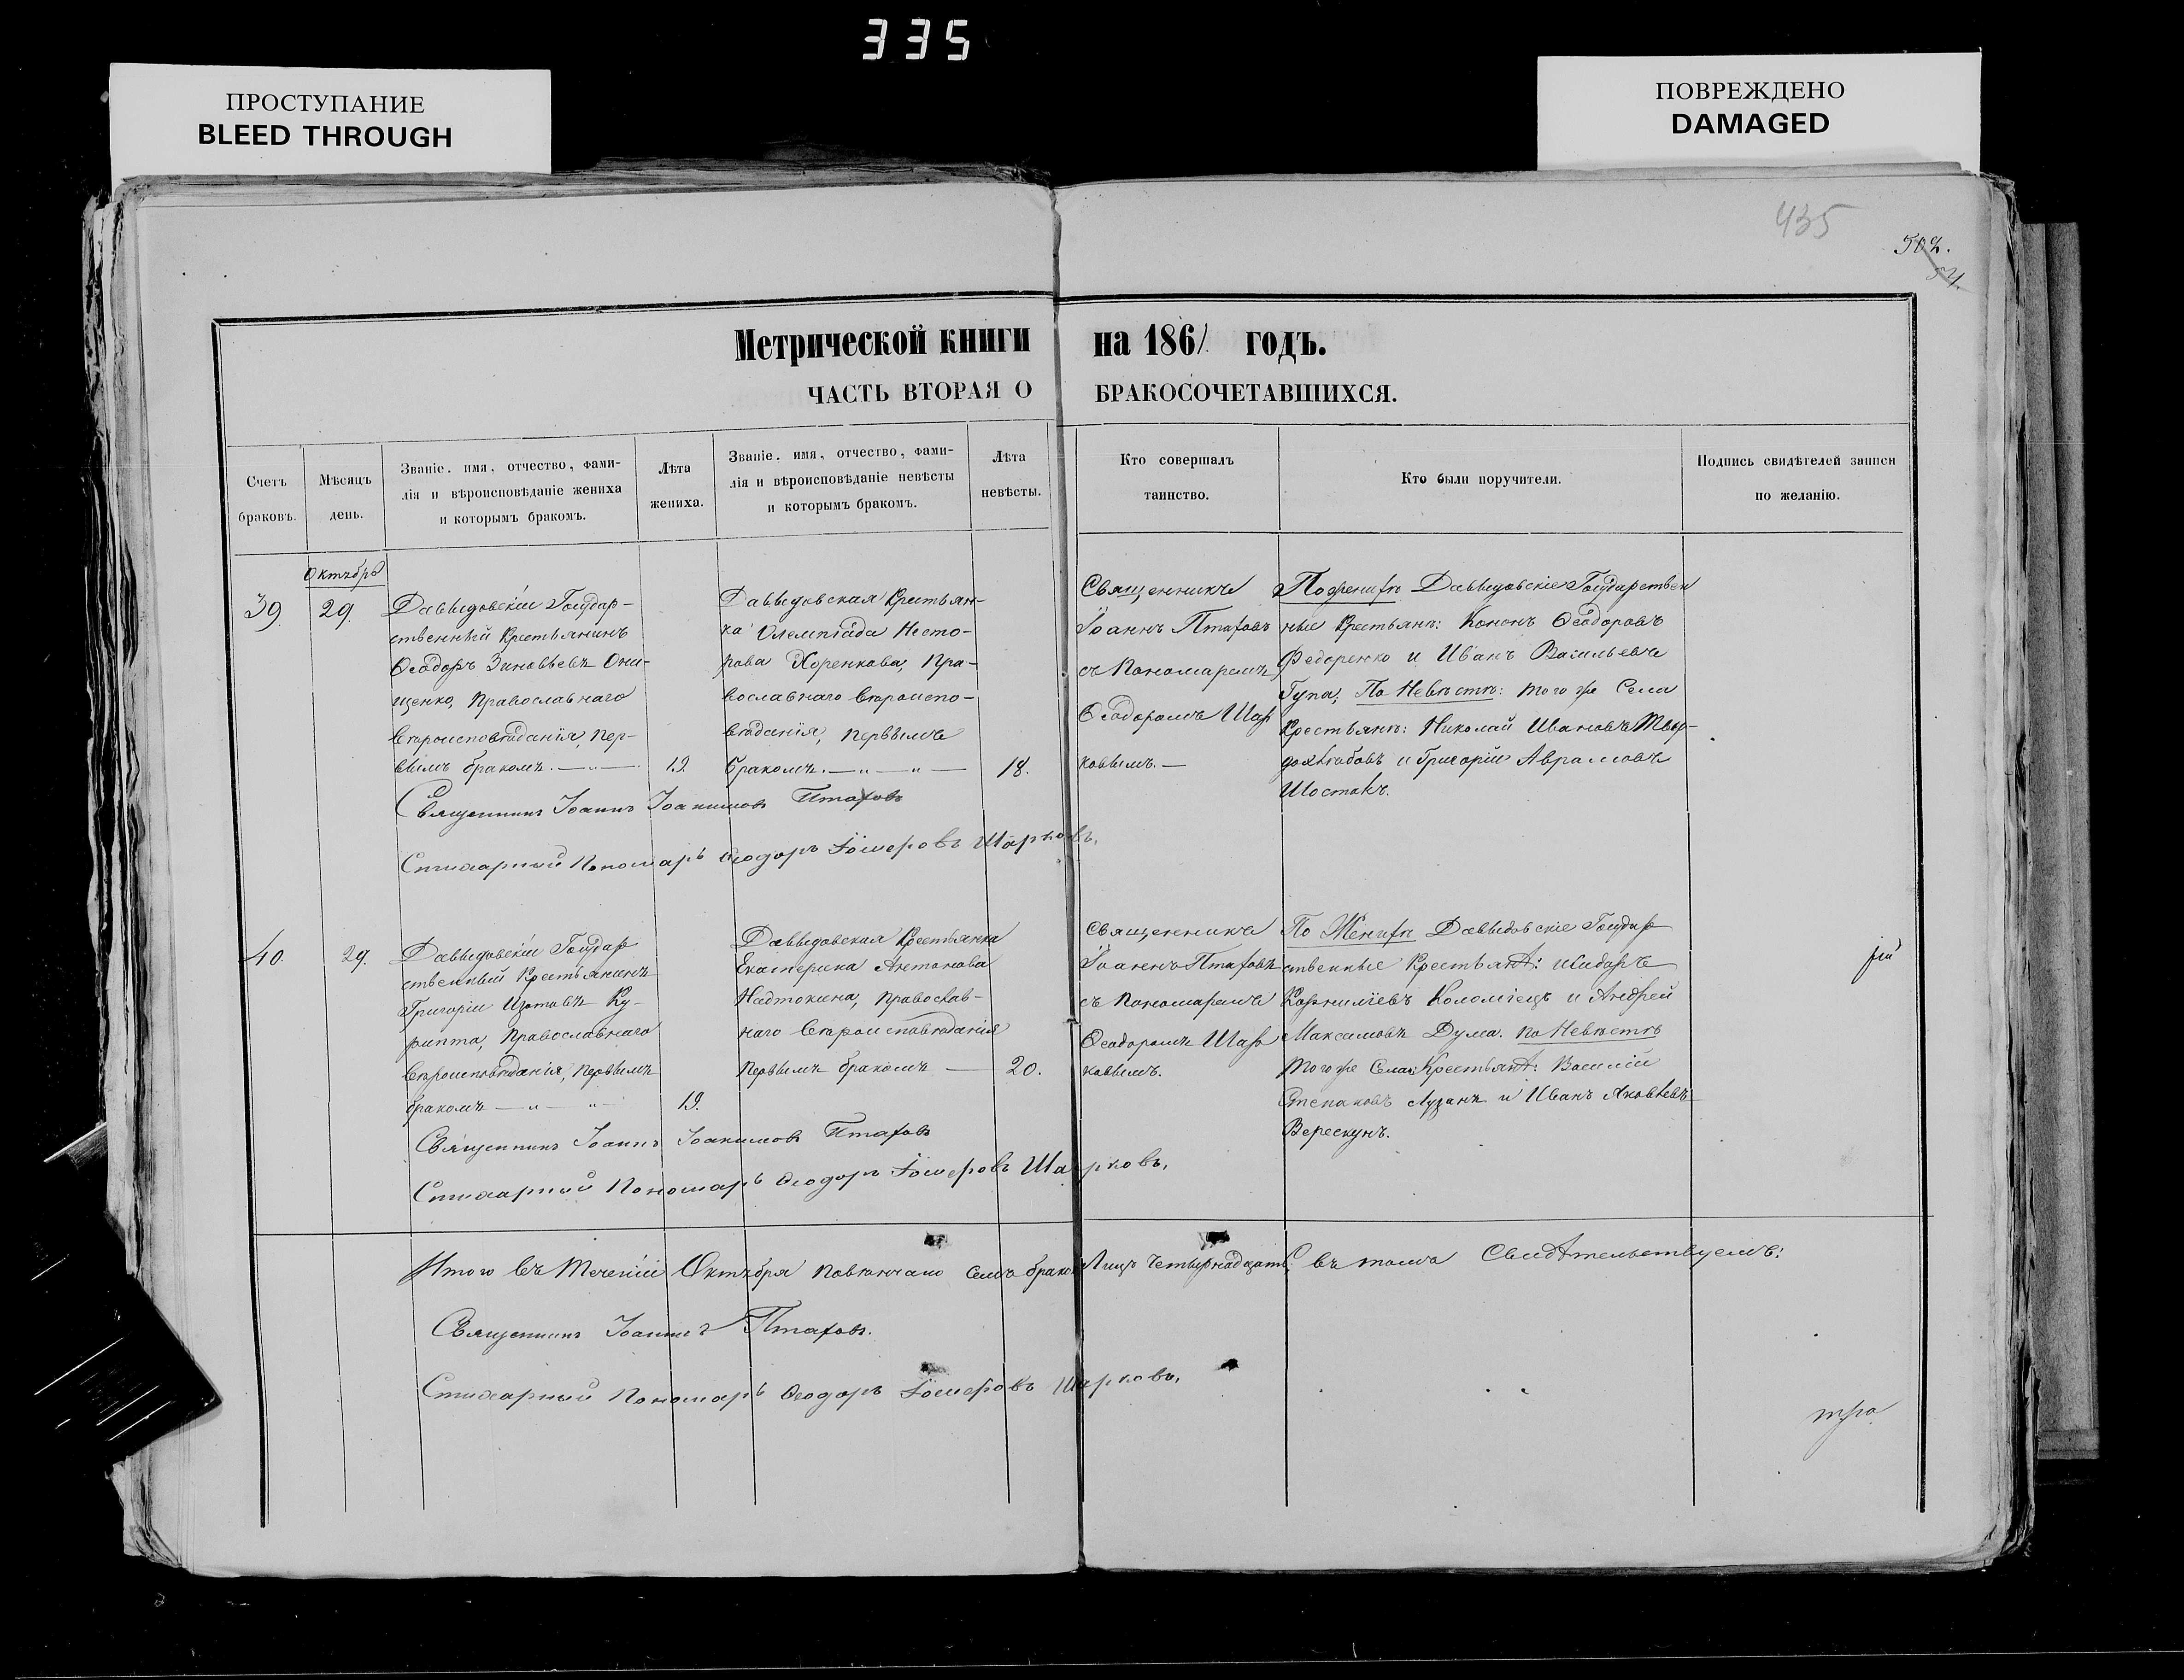 335
ПРОСТУПАНИЕ
BLEED THROUGH
ПОВРЕЖДЕНО
DAMAGED
435
502.
Метрической книги на 1861 годъ.
ЧАСТЬ ВТОРАЯ О БРАКОСОЧЕТАВШИХСЯ.
Счетъ
браковъ.
Мѣсяцъ
день.
Званіе, имя, отчество, фами-
лія и вѣроисповѣданіе жениха
и которымъ бракомъ.
Лѣта
жениха.
Званіе, имя, отчество, фами-
лія и вѣроисповѣданіе невѣсты
и которымъ бракомъ.
Лѣта
невѣсты.
Кто совершалъ
таинство.
Кто были поручители.
Подпись свидѣтелей записи
по желанію.
Октябрь
39.
29.
Давыдовскій Государ-
ственный Крестьянинъ
Ѳеодоръ Зиновьевъ Они-
щенко, Православнаго
Вѣроисповѣданія, пер-
вымъ бракомъ.
19.
Давыдовская Крестьян-
ка Олемпіада Несто-
рова Хоренкова, Пра-
вославнаго Вѣроиспо-
вѣданія, первымъ
бракомъ.
18.
Священникъ
Іоаннъ Птаховъ
съ Пономаремъ
Ѳеодоромъ Шар
ковымъ.
По Давыдовскіе Государствен
ные Крестьяне: Кононъ Ѳеодоровъ
Федоренко и Иванъ Васильевъ
Гупа; По Невѣстѣ: того же Села
Крестьяне: Николай Ивановъ Твер-
дохлѣбовъ и Григорій Аврамовъ
Шостакъ.
Священникъ Іоаннъ Іоакимовъ Птаховъ
Стихарный Пономарь Ѳеодоръ Шарковъ,
40.
29.
Давыдовскій Государ
ственный Крестьянинъ
Григорій Изотовъ Ку-
рипта, Православнаго
Вѣроисповѣданія, первымъ
бракомъ
19.
Давыдовская Крестьянка
Екатерина Антонова
Надтокина, Православ-
наго Вѣроисповѣданія
первымъ бракомъ
20.
Священникъ
Іоаннъ Птаховъ
съ Пономаремъ
Ѳеодоромъ Шар
ковымъ.
По Женихѣ Давыдовскіе Государ
ственные Крестьянѣ:
Корниліевъ Коломіецъ и Андрей
Максимовъ Дума. По Невѣстѣ
того же Села Крестьянѣ: Василій
Степановъ Лузанъ и Иванъ Яковлевъ
Верескунъ.
рій
Священникъ Іоаннъ Іоакимовъ Птаховъ
Стихарный Пономарь Ѳеодоръ Шарковъ,
Итого въ теченіи Октября повѣнчано семь браковъ Лицъ Четырнадцать, въ томъ Свидѣтельствуемъ:
Священникъ Іоаннъ Птаховъ.
Стихарный Пономарь Ѳеодоръ Шарковъ,